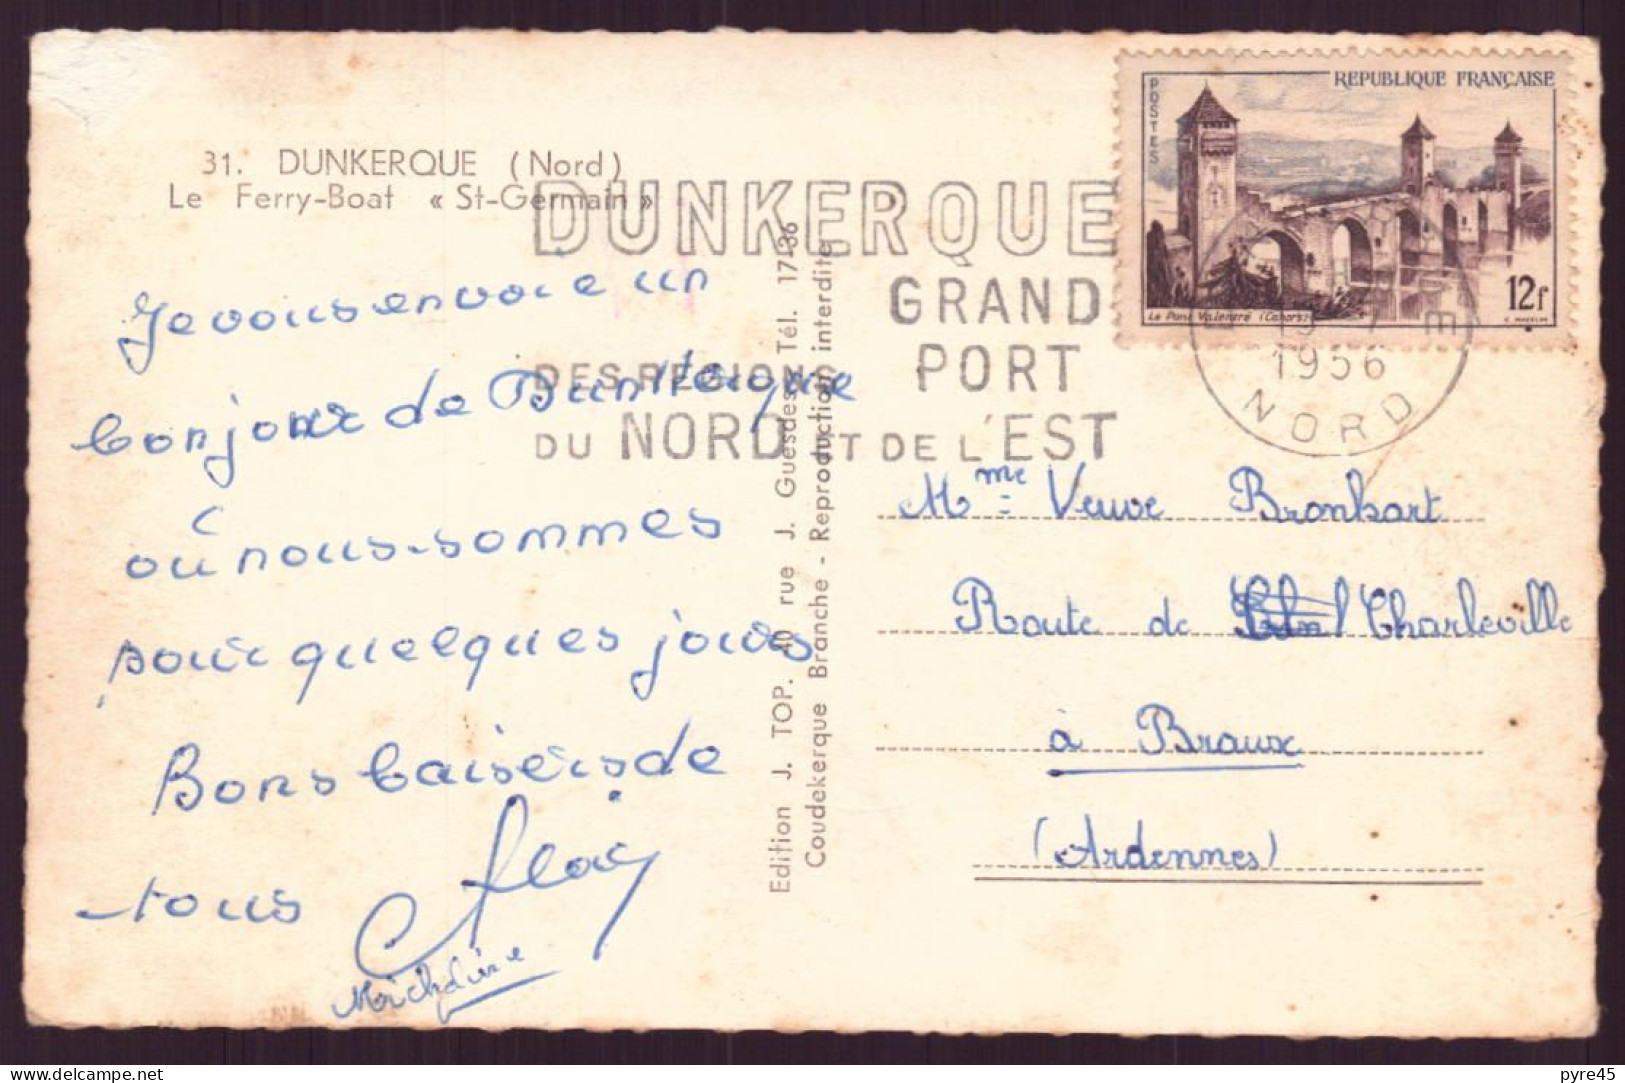 31. DUNKERQUE (Nord)
Le Ferry-Boat « St-Germain »
DUNKERQUE
GRAND
PORT
DES REGIONS
DU NORD ET DE L'EST
POSTES
REPUBLIQUE FRANÇAISE
Le Pont Valentré (Cahors)
12f
1956
NORD
Je vous envoie un
bonjour de Dunkerque
où nous sommes
pour quelques jours
Bons baisers de
tous
Edition J. TOP. 40 rue J. Guesdes Tél. 17-36
Coudekerque Branche - Reproduction interdite
Mme Veuve Bronkart
Route de Charleville
à Braux
(Ardennes)
pyre45